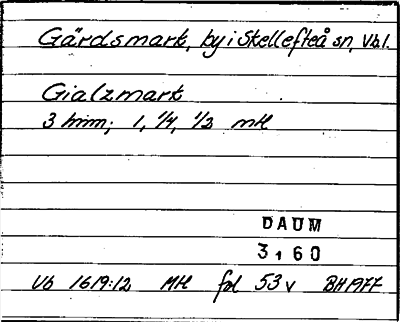 Gärdsmark, by i Skellefteå sn, Vb.l.
Gialzmark
3 hmm; 1, 1/4, 1/3 mtl
DAUM
3, 60
Vb 1619:12 Mtl fol 53 v BH 1977